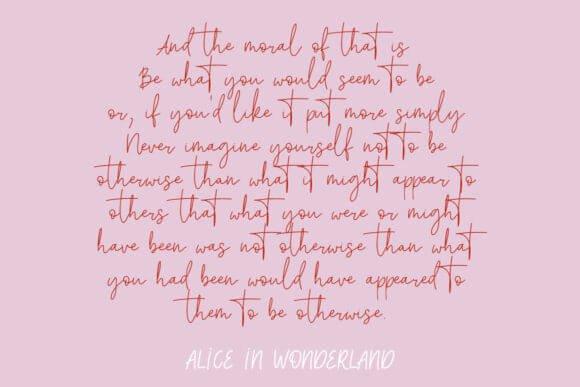 And the moral of that is
Be what you would seem to be
or, if you'd like it put more simply
Never imagine yourself not to be
otherwise than what it might appear to
others that what you were or might
have been was not otherwise than what
you had been would have appeared to
them to be otherwise.
ALICE IN WONDERLAND